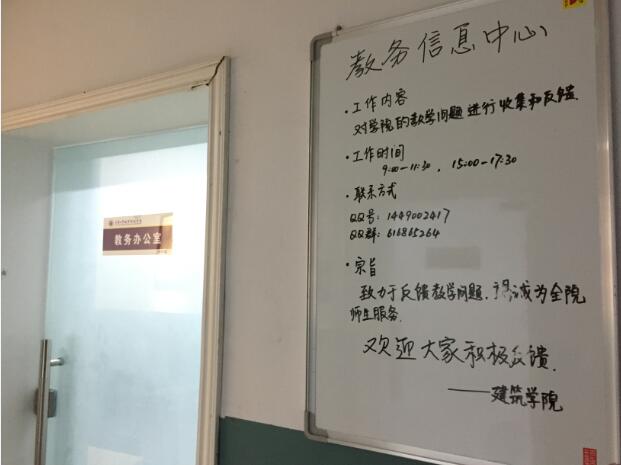 教务办公室
教务信息中心
·工作内容
对学院的教学问题进行收集和反馈.
·工作时间
9:00—11:30, 15:00-17:30
·联系方式
QQ号: 1449002417
QQ群: 616865264
·宗旨
致力于反馈教学问题,诚为全院
师生服务.
欢迎大家积极反馈.
——建筑学院